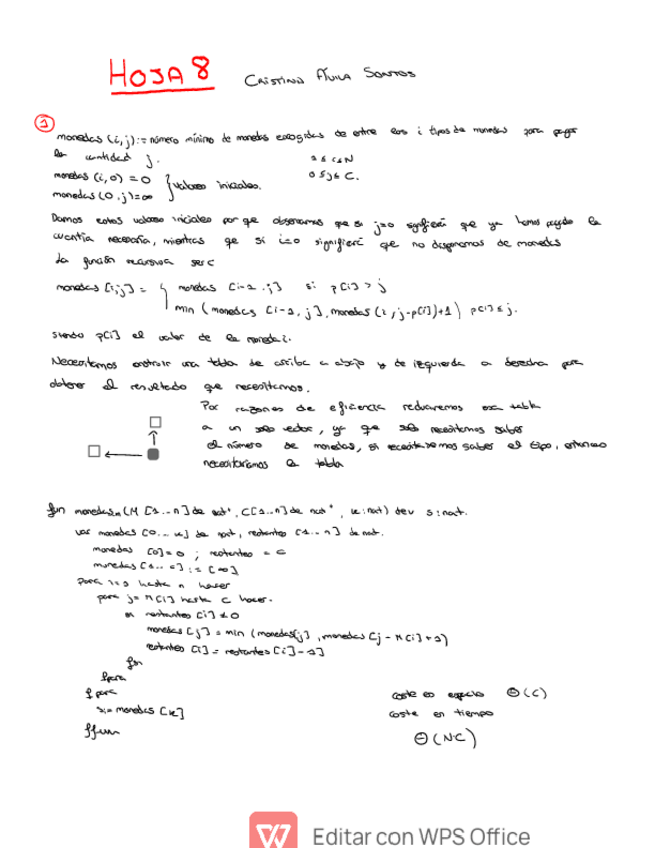 HOJA 8 CRISTINA ÁVILA SANTOS
①
monedas (i,j) := número mínimo de monedas escogidas de entre los i tipos de monedas para pagar
la cantidad j. 1 ≤ i ≤ N
monedas (i,0) = 0 } valores iniciales. 0 ≤ j ≤ C.
monedas (0,j) = ∞
Damos estos valores iniciales por que observamos que si j=0 significa que ya hemos pagado la
cuantía necesaria, mientras que si i=0 significa que no disponemos de monedas
La función recursiva será
monedas [i,j] = { monedas [i-1,j] si p[i] > j
min (monedas [i-1,j], monedas (i, j-p[i])+1) p[i] ≤ j.
siendo p[i] el valor de la moneda i.
Necesitamos construir una tabla de arriba a abajo y de izquierda a derecha para
obtener el resultado que necesitamos.
Por razones de eficiencia reduciremos esa tabla
a un solo vector, ya que solo necesitamos saber
el número de monedas, si necesitáremos saber el tipo, entonces
necesitaríamos la tabla
fun monedas (M [1..n] de nat⁺, C[1..n] de nat⁺, k:nat) dev s:nat.
var monedas [0..k] de nat, restantes [1..n] de nat.
monedas [0] = 0 ; restantes = C
monedas [1..c] := [∞]
para i=1 hasta n hacer
para j = M[i] hasta c hacer.
si restantes [i] ≠ 0
monedas [j] = min (monedas[j], monedas [j - M[i] + 1)
restantes [i] = restantes [i] - 1]
fsi
fpara
fpara coste en espacio Θ(C)
s:= monedas [k] coste en tiempo
ffun Θ(NC)
Editar con WPS Office